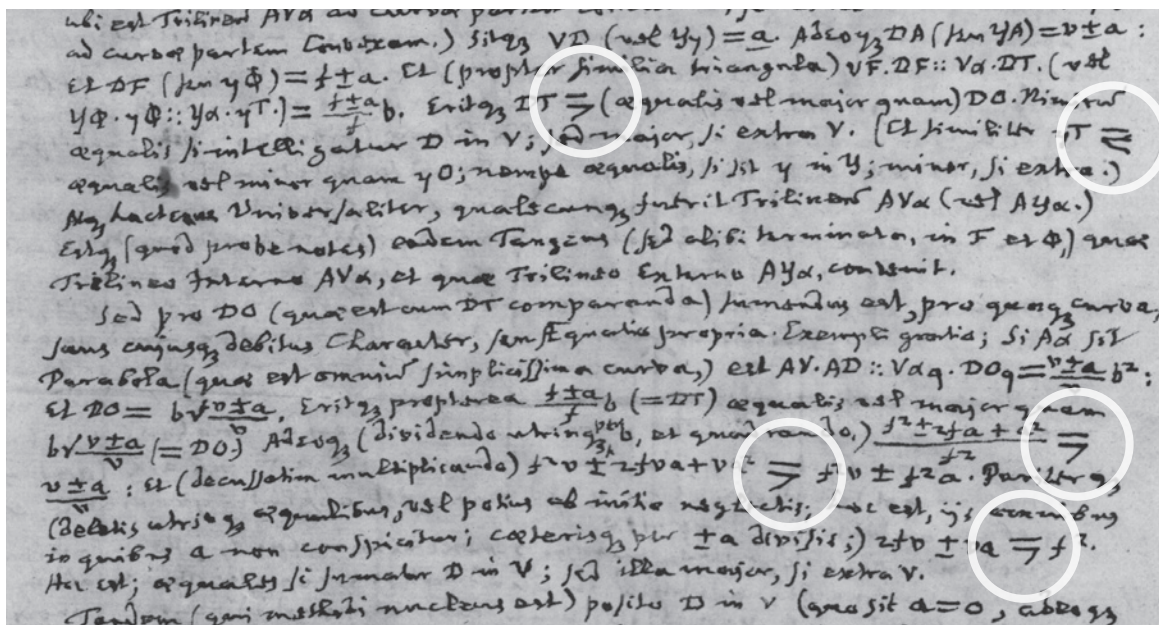 ubi est Trilineū AVα ad curvæ partem
ad curvæ partem Convexam.) Sitqꝫ VD (vel Yy) = a. Adeoqꝫ DA (seu yA) = v ± a :
Et DF (seu yΦ) = f ± a. Et (propter similia triangula) VF. DF :: Vα. DT. (vel
YΦ. yΦ :: Yα. yT.) = \frac{f±a}{f} b. Eritqꝫ DT ⩾ (æqualis vel major quam) DO. Nimirū
æqualis si intelligatur D in V; sed major, si extra V. (Et similiter yT ⩽
æqualis vel minor quam yO; nempe æqualis, si sit y in Y; minor, si extra.)
Atqꝫ hactenus Universaliter, qualecunqꝫ fuerit Trilineū AVα (vel AYα.)
Estqꝫ (quod probe notes) eadem Tangens (sed alibi terminata, in F et Φ,) quæ
Trilineo Interno AVα, et quæ Trilineo Externo AYα, convenit.
Sed pro DO (quæ est cum DT comparanda) sumendus est, pro quaqꝫ curva,
suus cujusqꝫ debitus Character, seu Æquatio propria. Exempli gratia; Si Aα sit
Parabola (quæ est omniū simplicissima curva,) est AV. AD :: Vαq. DOq = \frac{v±a}{v} b² :
Et DO = b√\frac{v±a}{v}. Eritqꝫ propterea \frac{f±a}{f} b (= DT) æqualis vel major quam
b√\frac{v±a}{v} (= DO.) Adeoqꝫ (dividendo utrinqꝫ per b, et quadrando,) \frac{f²±2fa+a²}{f²} ⩾
\frac{v±a}{v} : Et (decussatim multiplicando) f²v ± 2fva + va² ⩾ f²v ± f²a. Pariterqꝫ
(deletis utrinqꝫ æqualibus, vel potius ab initio neglectis; hoc est, ijs omnibus
in quibus a non conspicitur; cæterisqꝫ per ± a divisis;) 2fv ± va ⩾ f².
Hoc est; æquales si sumatur D in V; sed illa major, si extra V.
Tandem (qui methodi nucleus est) posito D in V (quo sit a = 0, adeoqꝫ